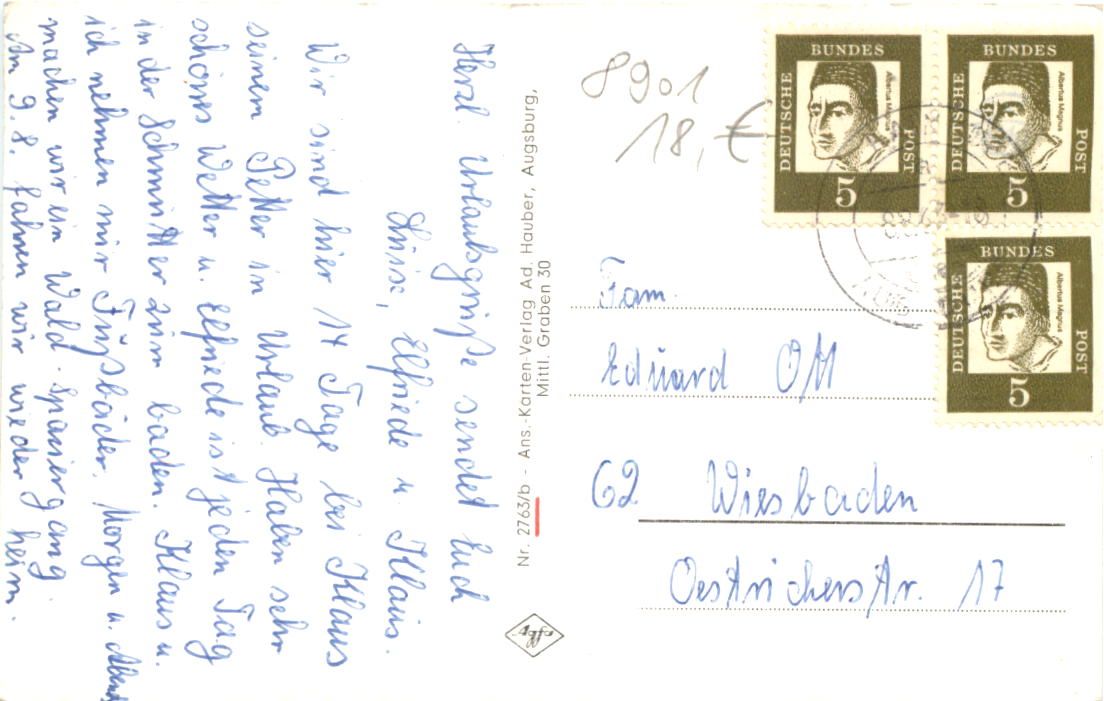 Herzl. Urlaubsgrüße sendet Euch
Luise, Elfriede u Klaus.
Wir sind hier 14 Tage bei Klaus
seinem Petter in Urlaub. Haben sehr
schönes Wetter u. Elfriede ist jeden Tag
in der Schmutter zum baden. Klaus u.
ich nehmen nur Fußbäder. Morgen u. Abend
machen wir ein Wald-spaziergang.
Am 9. 8. fahren wir wieder heim.
Nr. 2763/b - Ans.-Karten-Verlag Ad. Hauber, Augsburg,
Mittl. Graben 30
Agfa
8901
18,€
DEUTSCHE BUNDES POST
Albertus Magnus
5
DEUTSCHE BUNDES POST
Albertus Magnus
5
DEUTSCHE BUNDES POST
Albertus Magnus
5
Fam.
Eduard Ott
62 Wiesbaden
Oestricherstr. 17